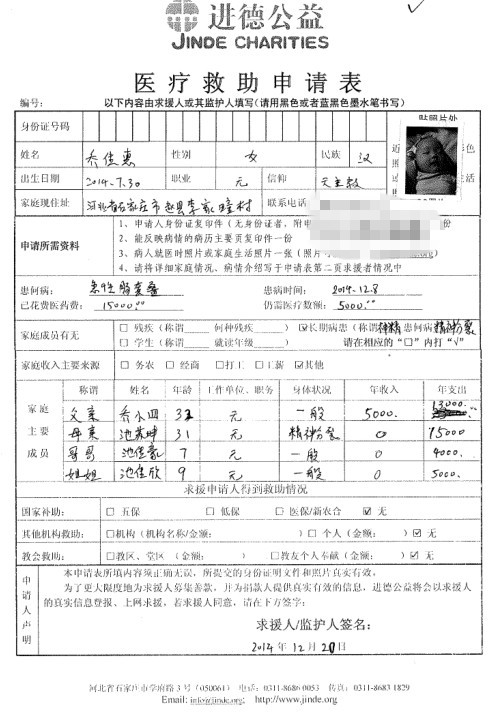 进德公益
JINDE CHARITIES
医疗救助申请表
编号： 以下内容由求援人或其监护人填写（请用黑色或者蓝黑色墨水笔书写）
身份证号码 贴照片处
姓名 乔佳惠 性别 女 民族 汉
出生日期 2014.7.30 职业 无 信仰 天主教
家庭现住址 河北省石家庄市赵县李家疃村 联系电话
申请所需资料
1、申请人身份证复印件（无身份证者，附申
2、能反映病情的病历主要页复印件一份
3、病人就医时照片或家庭生活照一张（照片
4、请将详细家庭情况、病情介绍写于申请表第二页求援者情况中
患何病： 患病时间： 2014.12.8
已花费医药费： 15000.00 仍需医疗数额： 5000.00
家庭成员有无 □ 残疾（称谓 何种残疾 ） ☑ 长期病患（称谓 患何病 精神分裂）
□ 学生（称谓 就读年级 ） 请在相应的“□”内打“√”
家庭收入主要来源 □ 务农 □ 经商 □ 打工 □ 工薪 ☑ 其他
家庭主要成员
称谓 姓名 年龄 工作单位、职务 身体状况 年收入 年支出
父亲 乔小四 32 无 一般 5000. 13000.
母亲 池苏坤 31 无 精神分裂 0 15000
哥哥 池佳豪 7 无 一般 0 4000.
姐姐 池佳欣 9 无 一般 0 5000.
求援申请人得到救助情况
国家补助： □ 五保 □ 低保 □ 医保/新农合 ☑ 无
其他机构救助： □ 机构（机构名称/金额： ） □ 个人（金额： ） ☑ 无
教会救助： □ 教区、堂区（金额： ） □ 教友个人奉献（金额： ） ☑ 无
申请人声明
本申请表所填内容须正确无误，所提交的身份证明文件和照片真实有效。
为了更大限度地为求援人募集善款，并为捐款人提供真实有效的信息，进德公益将会以求援人
的真实信息登报、上网求援，若求援人同意，请在下方签字：
求援人/监护人签名：
2014 年 12 月 20 日
河北省石家庄市学府路 3 号（050061） 电话：0311-8686 0053 传真：0311-8683 1829
Email: info@jinde.org； http://www.jinde.org